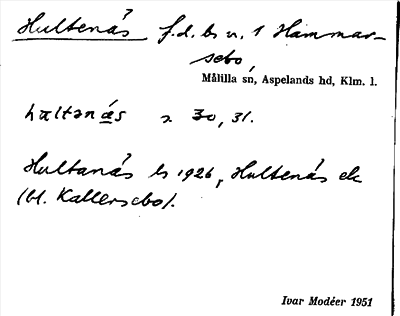 Hultenås f.d. ls u. 1 Hammar-
sebo,
Målilla sn, Aspelands hd, Klm. l.
hultənås s. 30, 31.
Hultanås ls 1926, Hultenås ek
(bl. Kallersebo).
Ivar Modéer 1951